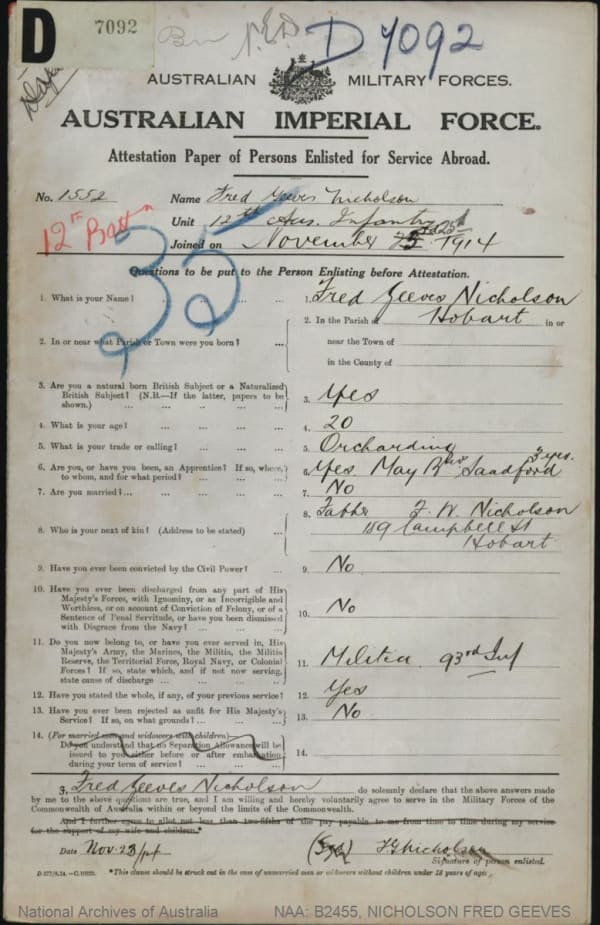 D 7092
D 7092
AUSTRALIAN MILITARY FORCES.
AUSTRALIAN IMPERIAL FORCE.
Attestation Paper of Persons Enlisted for Service Abroad.
No. 1552 Name Fred Geeves Nicholson
Unit 12th Aus. Infantry
Joined on November 1914
12th Battn
35
Questions to be put to the Person Enlisting before Attestation.
1. What is your Name? ... ... ... ... 1. Fred Geeves Nicholson
2. In or near what Parish or Town were you born? ... 2. In the Parish of Hobart in or
near the Town of
in the County of
3. Are you a natural born British Subject or a Naturalized
British Subject? (N.B.—If the latter, papers to be
shown.) ... ... ... ... 3. Yes
4. What is your age? ... ... ... ... 4. 20
5. What is your trade or calling? ... ... ... 5. Orcharding
6. Are you, or have you been, an Apprentice? If so, where,
to whom, and for what period? ... ... ... 6. Yes May Bros Sandford 3 yrs.
7. Are you married? ... ... ... ... 7. No
8. Who is your next of kin? (Address to be stated) ... 8. Father F. W. Nicholson
189 Campbell St
Hobart
9. Have you ever been convicted by the Civil Power? ... 9. No
10. Have you ever been discharged from any part of His
Majesty's Forces, with Ignominy, or as Incorrigible and
Worthless, or on account of Conviction of Felony, or of a
Sentence of Penal Servitude, or have you been dismissed
with Disgrace from the Navy? ... ... ... 10. No
11. Do you now belong to, or have you ever served in, His
Majesty's Army, the Marines, the Militia, the Militia
Reserve, the Territorial Force, Royal Navy, or Colonial
Forces? If so, state which, and if not now serving,
state cause of discharge ... ... ... ... 11. Militia 93rd Inf
12. Have you stated the whole, if any, of your previous service? 12. Yes
13. Have you ever been rejected as unfit for His Majesty's
Service? If so, on what grounds? ... ... ... 13. No
14. (For married men and widowers with children)
Do you understand that no Separation Allowance will be
issued to you either before or after embarkation
during your term of service? ... ... ... 14.
I, Fred Geeves Nicholson do solemnly declare that the above answers made
by me to the above questions are true, and I am willing and hereby voluntarily agree to serve in the Military Forces of the
Commonwealth of Australia within or beyond the limits of the Commonwealth.
And I further agree to allot not less than two-fifths of the pay payable to me from time to time during my service
for the support of my wife and children.*
Date Nov. 23/14 (Sgd) F G Nicholson
Signature of person enlisted.
*This clause should be struck out in the case of unmarried men or widowers without children under 18 years of age.
National Archives of Australia NAA: B2455, NICHOLSON FRED GEEVES